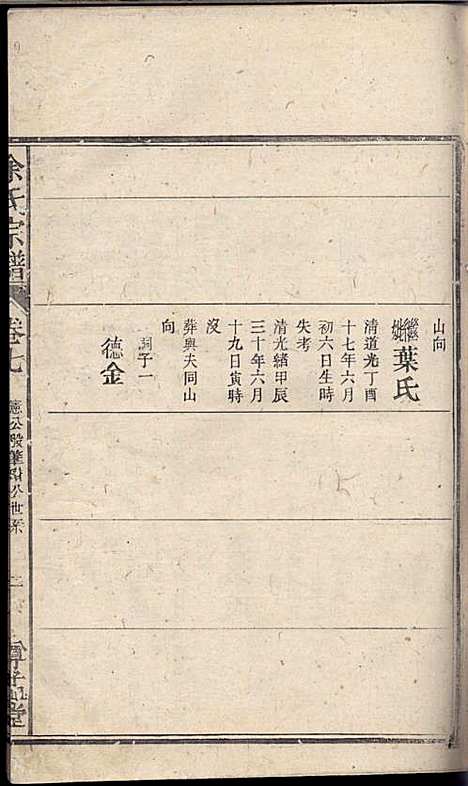 山向
繼妣葉氏
清道光丁酉
十七年六月
初六日生時
失考
清光緒甲辰
三十年六月
十九日寅時
沒
葬與夫同山
向
嗣子一
德金
余氏宗譜
卷七
憲公股華
公世系
二
堂